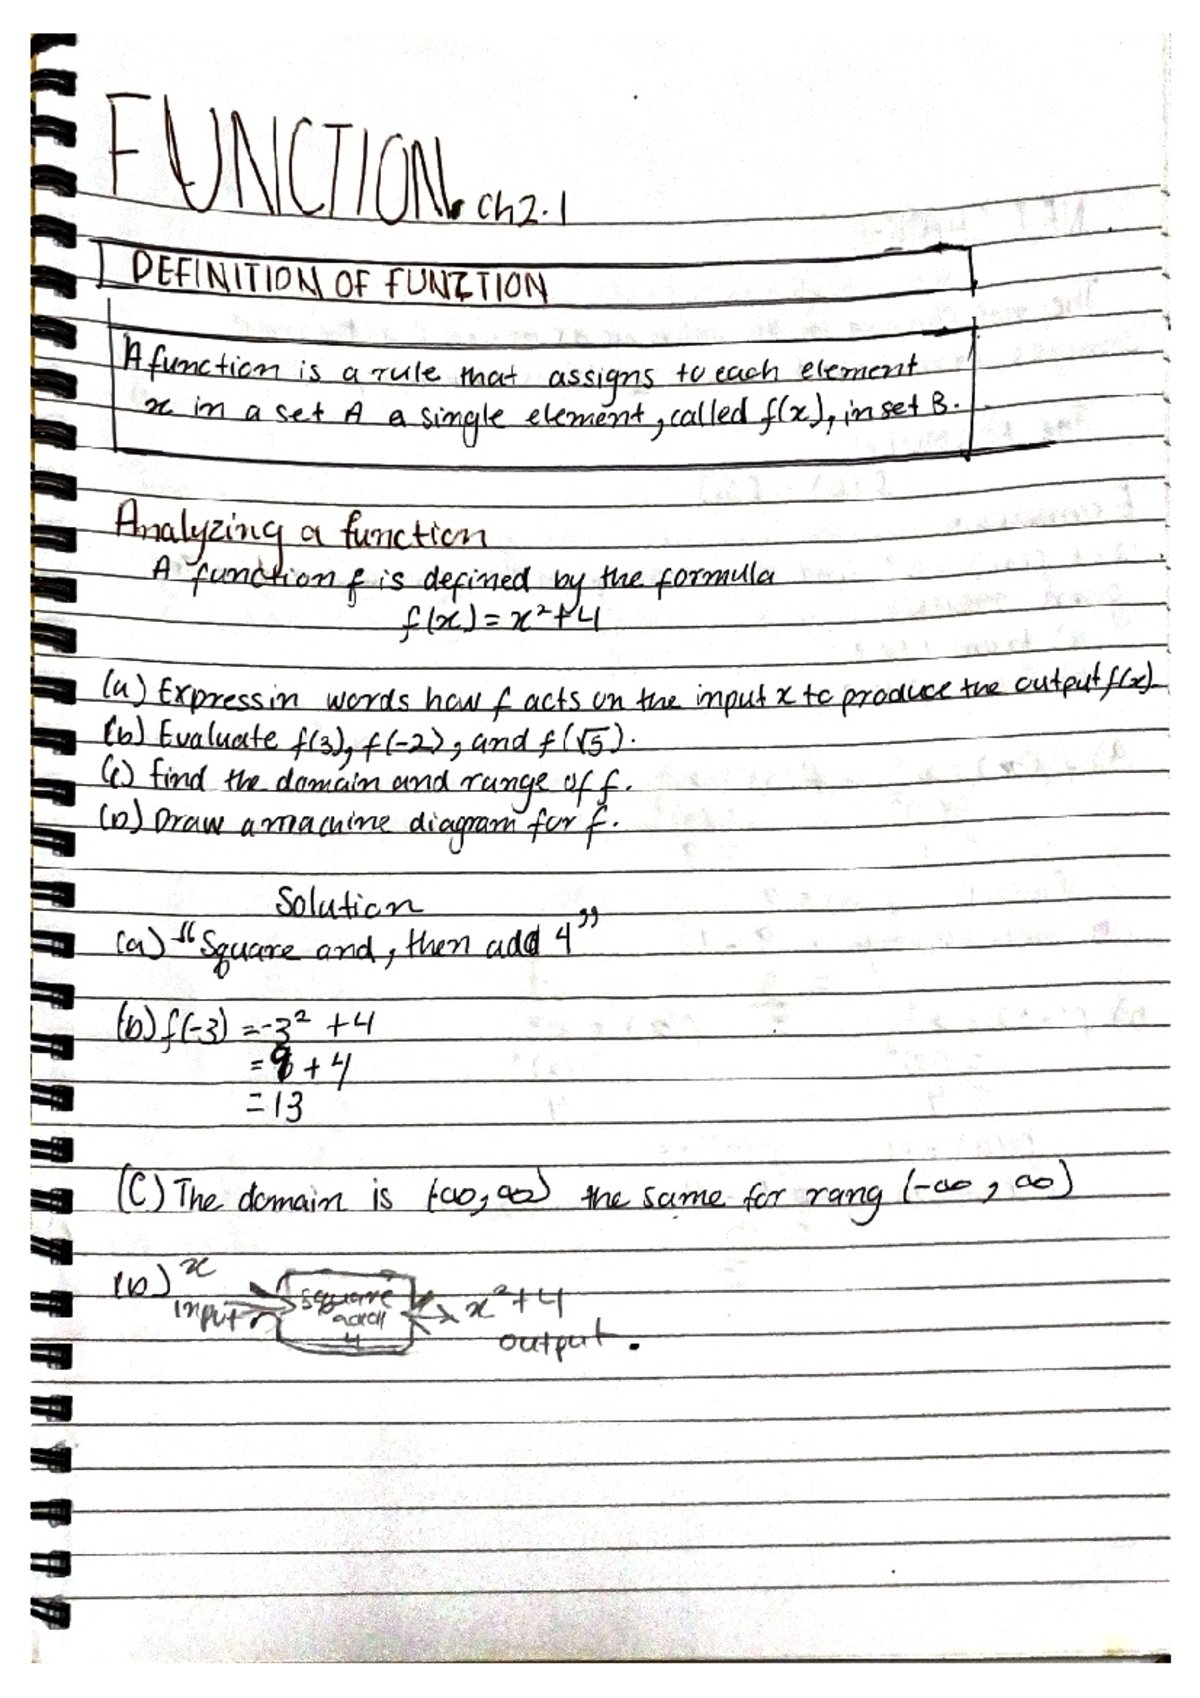 FUNCTION. ch2.1
DEFINITION OF FUNCTION
A function is a rule that assigns to each element
x in a set A a single element, called f(x), in set B.
Analyzing a function
A function f is defined by the formula
f(x) = x²+4
(a) Express in words how f acts on the input x to produce the output f(x).
(b) Evaluate f(3), f(-2), and f(√5).
(c) find the domain and range of f.
(D) Draw a machine diagram for f.
Solution
(a) "Square and, then add 4"
(b) f(-3) = -3² + 4
= 9 + 4
= 13
(C) The domain is (-∞, ∞) the same for rang (-∞, ∞)
(D) x
input
square
add
4
x²+4
output.